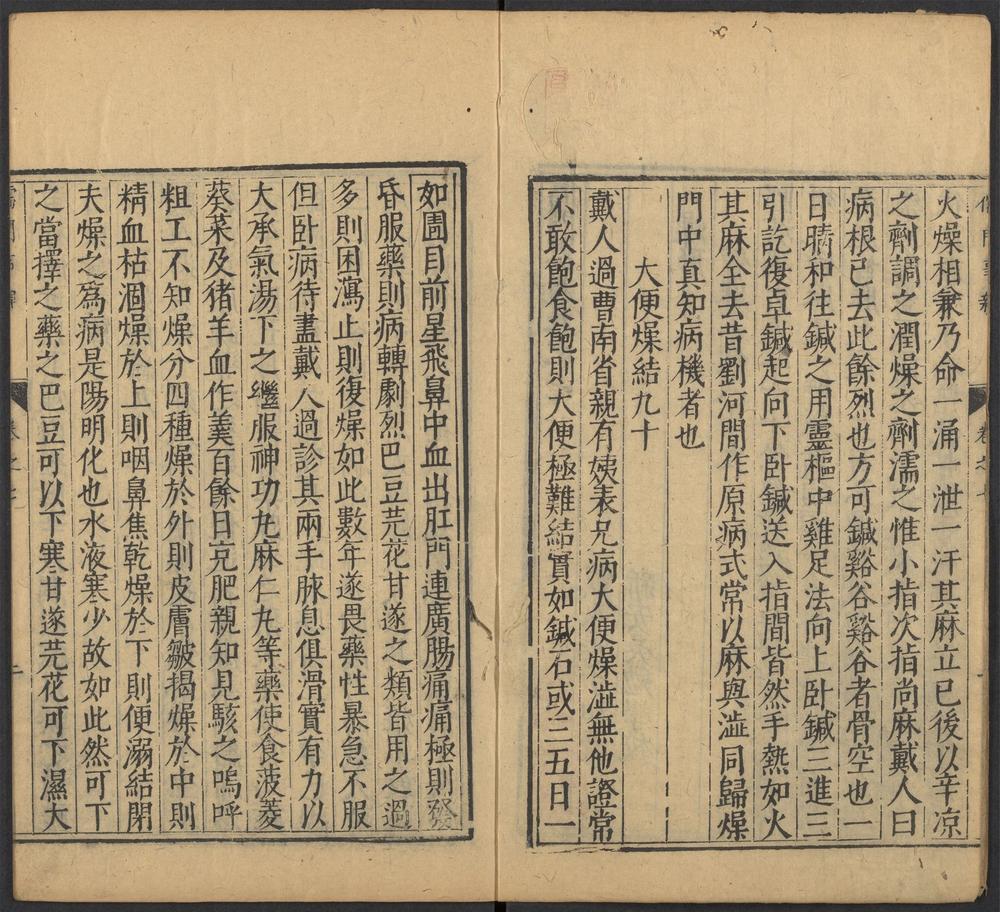 火燥相兼乃命一涌一泄一汗其麻立已後以辛凉
之劑調之潤燥之劑濡之惟小指次指尚麻戴人曰
病根已去此餘烈也方可鍼谿谷谿谷者骨空也一
日晴和往鍼之用靈樞中雞足法向上卧鍼三進三
引訖復卓鍼起向下卧鍼送入指間皆然手熱如火
其麻全去昔劉河間作原病式常以麻與澁同歸燥
門中真知病機者也
大便燥結九十
戴人過曹南省親有姨表兄病大便燥澁無他證常
不敢飽食飽則大便極難結實如鍼石或三五日一
如圊目前星飛鼻中血出肛門連廣腸痛痛極則發
昏服藥則病轉劇烈巴豆芫花甘遂之類皆用之過
多則困瀉止則復燥如此數年遂畏藥性暴急不服
但卧病待盡戴人過診其兩手脉息俱滑實有力以
大承氣湯下之繼服神功丸麻仁丸等藥使食菠菱
葵菜及猪羊血作羹百餘日充肥親知見駭之嗚呼
粗工不知燥分四種燥於外則皮膚皺揭燥於中則
精血枯涸燥於上則咽鼻焦乾燥於下則便溺結閉
夫燥之爲病是陽明化也水液寒少故如此然可下
之當擇之藥之巴豆可以下寒甘遂芫花可下濕大